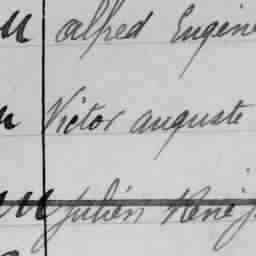 alfred Eugène
Victor auguste
Julien René